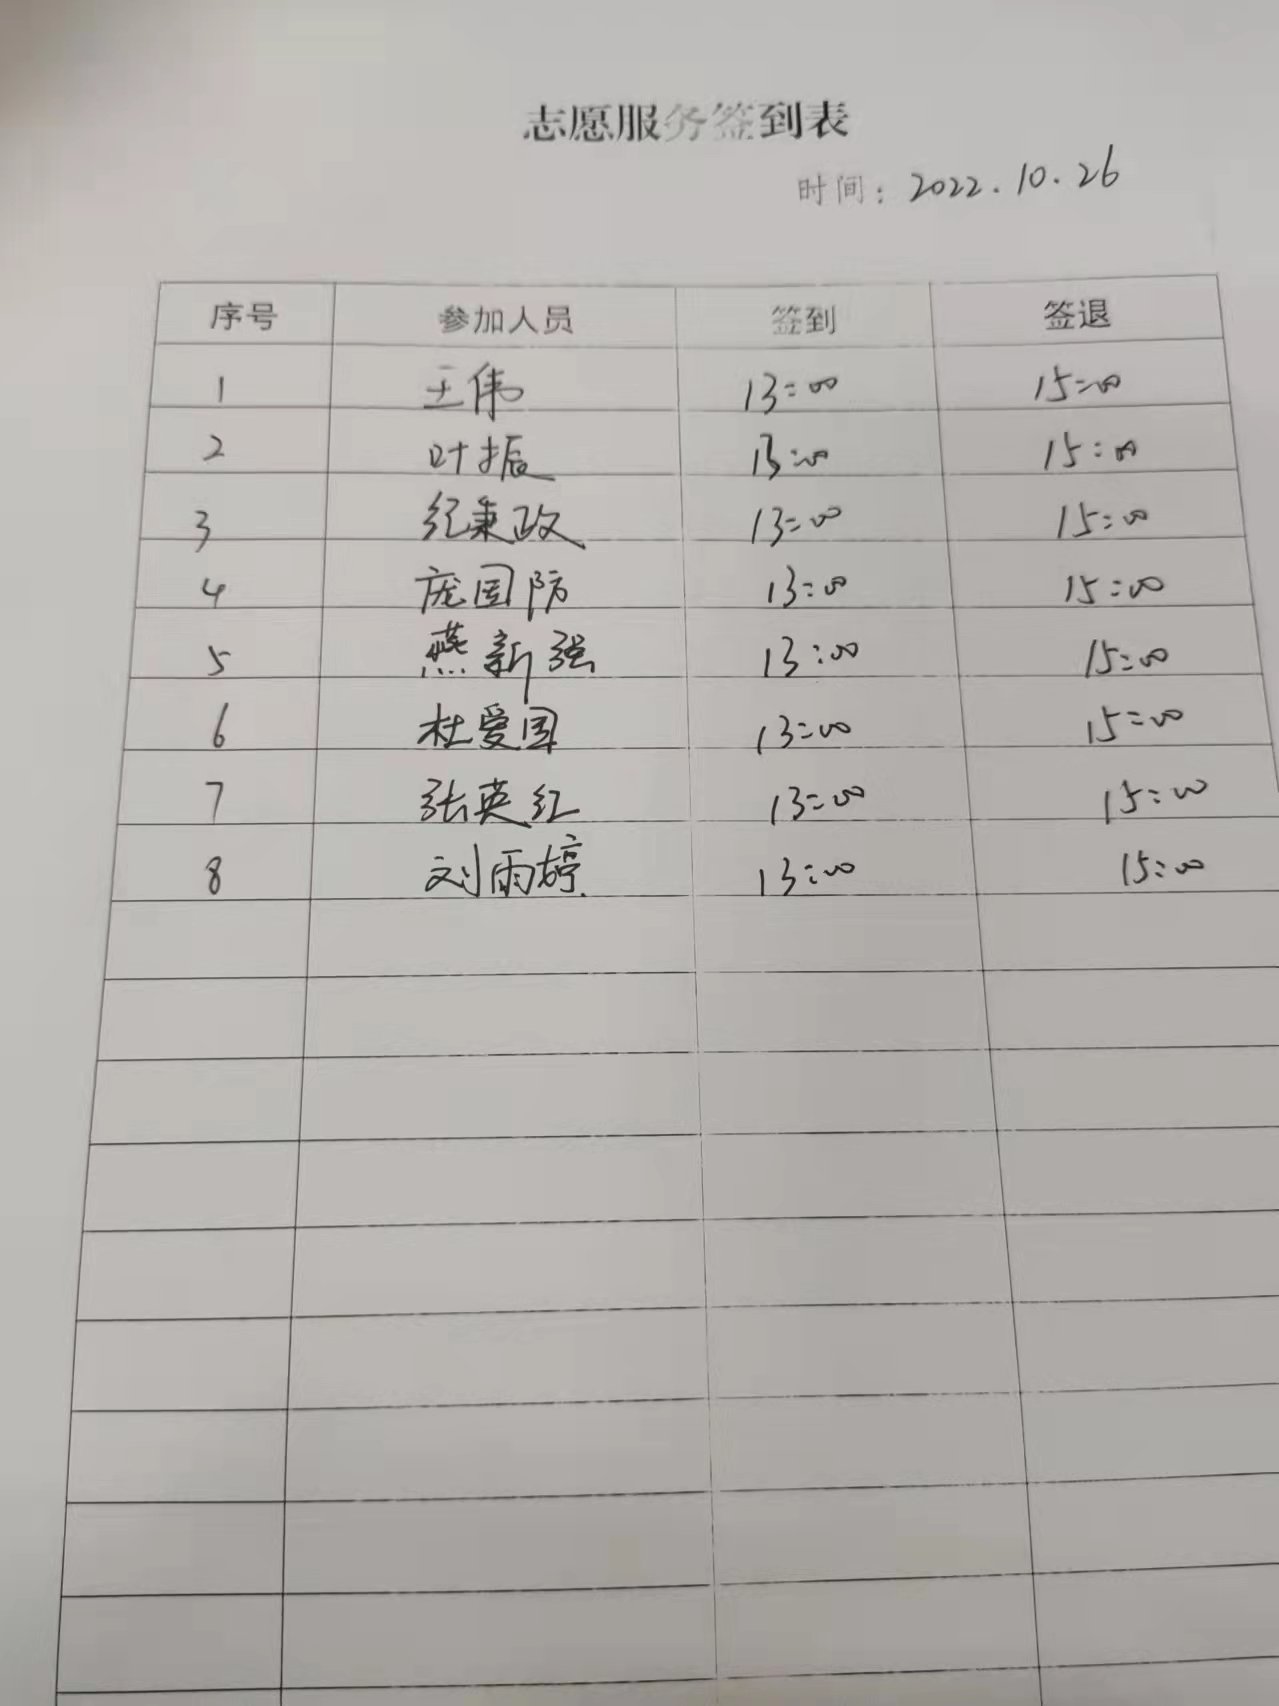 志愿服务签到表
时间：2022.10.26
序号 参加人员 签到 签退
1 王伟 13:00 15:00
2 叶振 13:00 15:00
3 纪秉政 13:00 15:00
4 庞国防 13:00 15:00
5 燕新强 13:00 15:00
6 杜爱国 13:00 15:00
7 张英红 13:00 15:00
8 刘雨婷 13:00 15:00